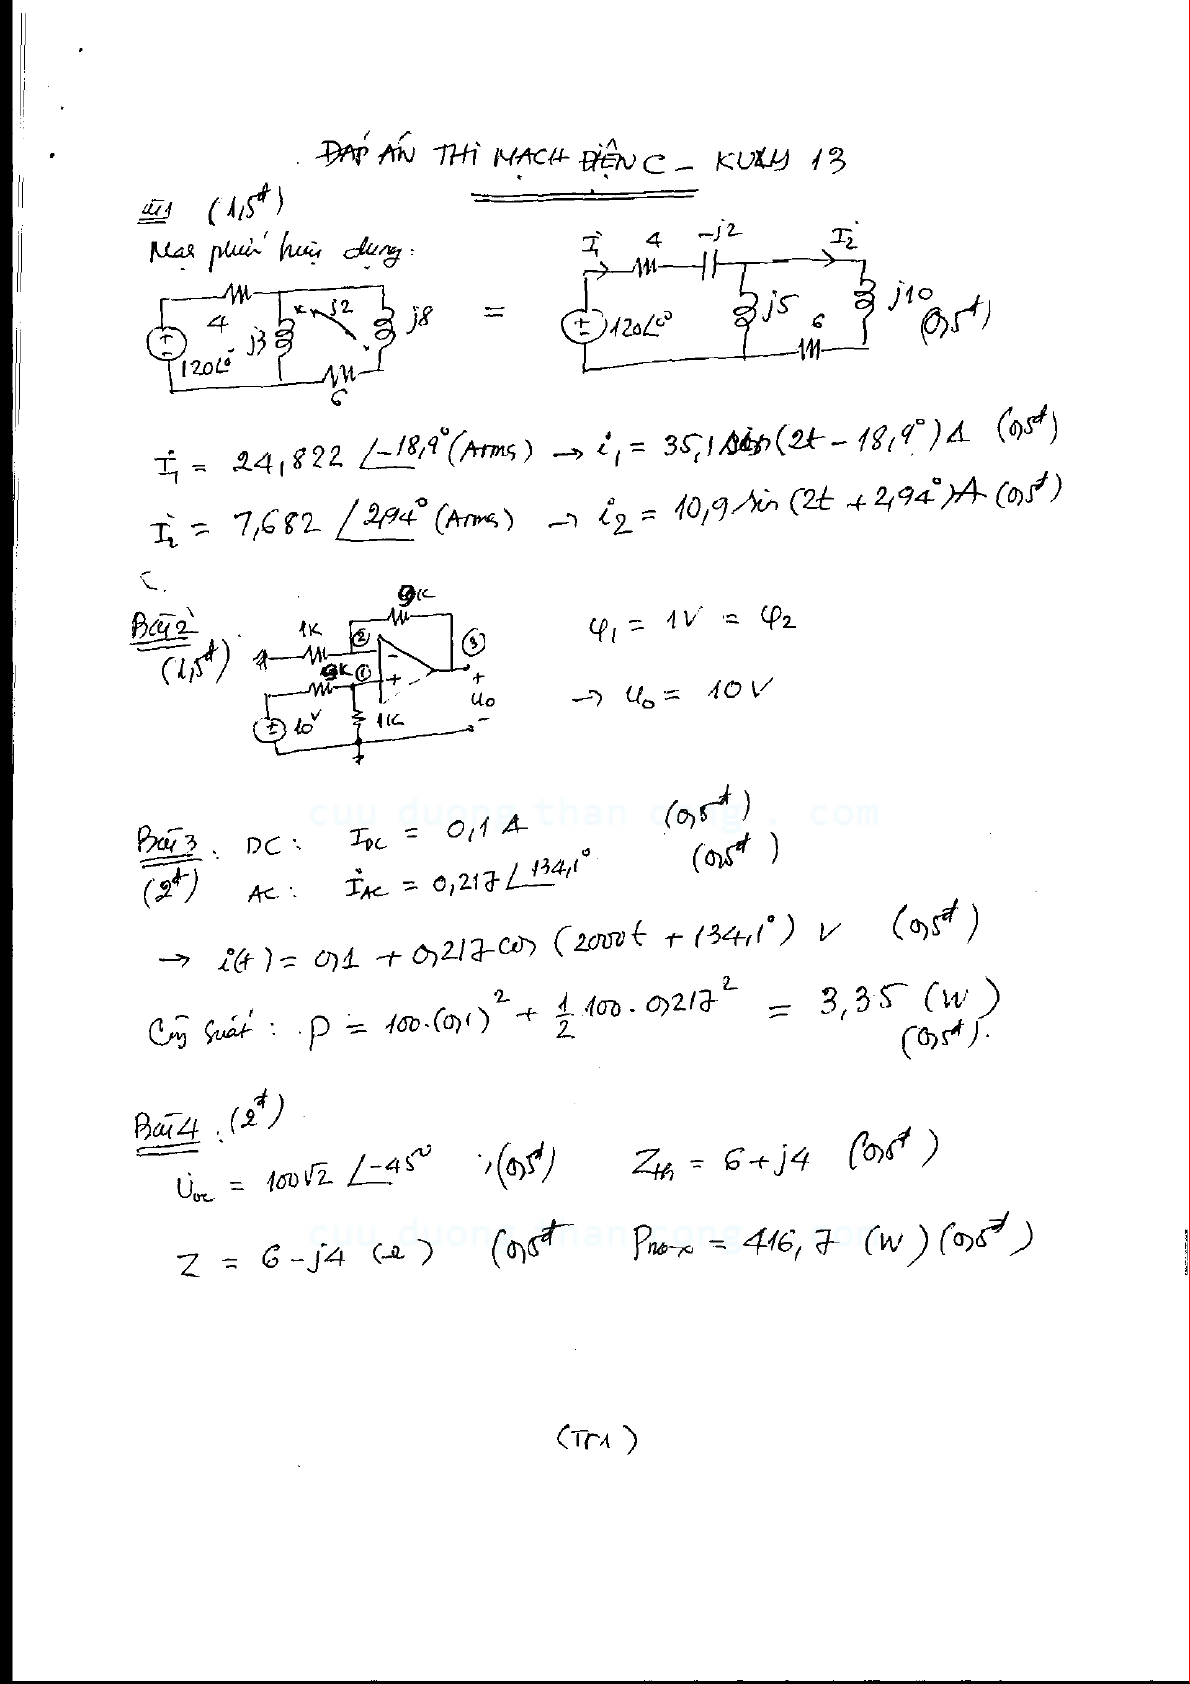 ĐÁP ÁN THI MẠCH ĐIỆN C –
13
(1,5đ)
Mạch phức hiệu dụng:
4
j3
j2
j8
120∠0°
6
=
İ₁
4
-j2
İ₂
120∠0°
j5
j10
6
(0,5đ)
İ₁ = 24,822 ∠-18,9° (Arms) → i₁ = 35,1 sin(2t - 18,9°) A (0,5đ)
İ₂ = 7,682 ∠2,94° (Arms) → i₂ = 10,9 sin(2t + 2,94°) A (0,5đ)
Bài 2
(1,5đ)
9K
1K
②
③
9K
①
-
+
10V
1K
+
u₀
-
φ₁ = 1V = φ₂
→ u₀ = 10V
cuu duong than cong . com
Bài 3: DC: I_DC = 0,1 A (0,5đ)
(2đ) AC: İ_AC = 0,217 ∠134,1° (0,5đ)
→ i(t) = 0,1 + 0,217 cos (2000t + 134,1°) V (0,5đ)
Công suất: P = 100.(0,1)² + 1/2 100. 0,217² = 3,35 (W)
(0,5đ).
Bài 4: (2đ)
U̇oc = 100√2 ∠-45° ; (0,5đ) Zth = 6 + j4 (0,5đ)
cuu duong than cong . com
Z = 6 - j4 (Ω) (0,5đ Pmax = 416,7 (W) (0,5đ)
(Tr1)